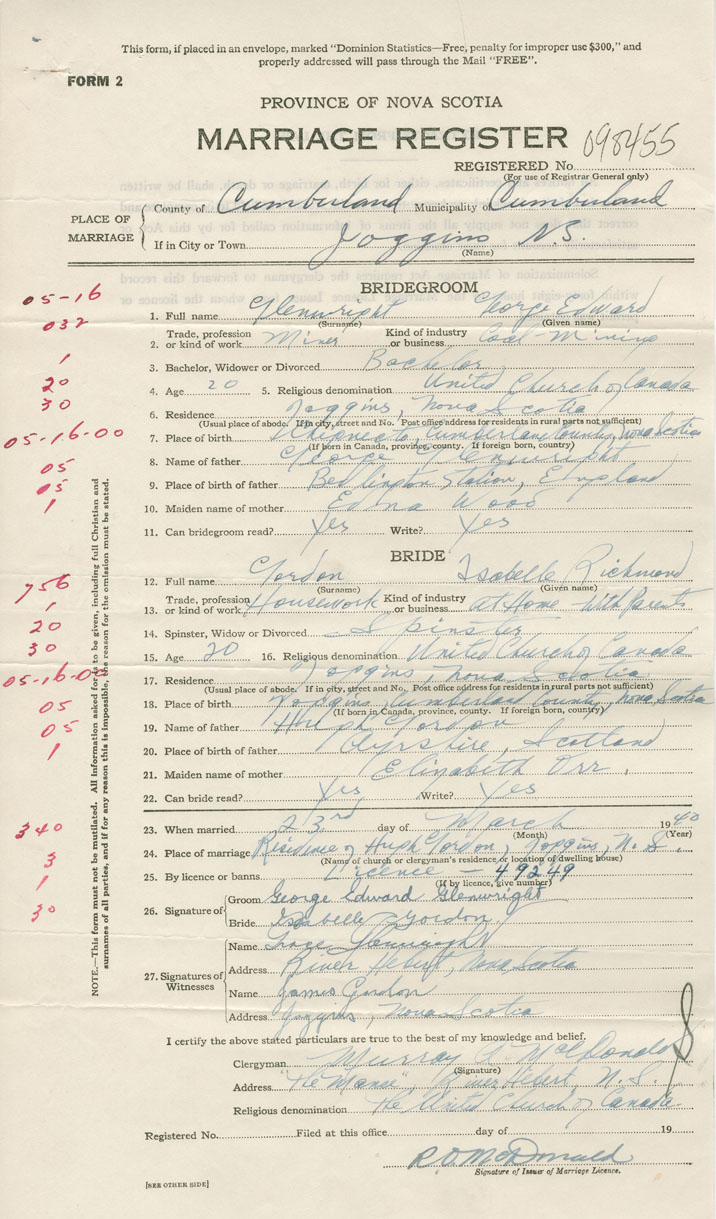 This form, if placed in an envelope, marked "Dominion Statistics—Free, penalty for improper use $300," and
properly addressed will pass through the Mail "FREE".
FORM 2
PROVINCE OF NOVA SCOTIA
MARRIAGE REGISTER 098455
REGISTERED No.
(For use of Registrar General only)
PLACE OF MARRIAGE
County of Cumberland Municipality of Cumberland
If in City or Town Joggins N.S.
(Name)
BRIDEGROOM
05-16
1. Full name Glenwright George Edward
(Surname) (Given name)
032
2. Trade, profession or kind of work Miner Kind of industry or business Coal Mining
1
3. Bachelor, Widower or Divorced Bachelor
20
4. Age 20 5. Religious denomination United Church of Canada
30
6. Residence Joggins, Nova Scotia
(Usual place of abode. If in city, street and No. Post office address for residents in rural parts not sufficient)
05-16-00
7. Place of birth Cumberland County, Nova Scotia
(If born in Canada, province, county. If foreign born, country)
05
8. Name of father George Glenwright
05
9. Place of birth of father Bedlington Station, England
1
10. Maiden name of mother Edna Wood
11. Can bridegroom read? Yes Write? Yes
BRIDE
12. Full name Gordon Isabelle Richmond
(Surname) (Given name)
756
13. Trade, profession or kind of work Housework Kind of industry or business at Home with Parents
1
14. Spinster, Widow or Divorced Spinster
20
15. Age 20 16. Religious denomination United Church of Canada
30
17. Residence Joggins, Nova Scotia
(Usual place of abode. If in city, street and No. Post office address for residents in rural parts not sufficient)
05-16-00
18. Place of birth Joggins, Cumberland County, Nova Scotia
(If born in Canada, province, county. If foreign born, country)
05
19. Name of father Hugh Gordon
05
20. Place of birth of father Ayrshire, Scotland
1
21. Maiden name of mother Elizabeth Orr.
22. Can bride read? Yes Write? Yes
23. When married 23rd day of March 1940
(Month) (Year)
340
24. Place of marriage Residence of Hugh Gordon, Joggins, N.S.
(Name of church or clergyman's residence or location of dwelling house)
3
25. By licence or banns Licence - 49249
(If by licence, give number)
1
26. Signature of
Groom George Edward Glenwright
30
Bride Isabelle Gordon
27. Signatures of Witnesses
Name Grace Glenwright
Address River Hebert, Nova Scotia
Name James Gordon
Address Joggins, Nova Scotia
I certify the above stated particulars are true to the best of my knowledge and belief.
Clergyman Murray McDonald
(Signature)
Address "The Manse", River Hebert, N.S.
Religious denomination The United Church of Canada.
Registered No. Filed at this office day of 19
R.D. McDonald
Signature of Issuer of Marriage Licence.
[SEE OTHER SIDE]
NOTE.—This form must not be mutilated. All information asked for is to be given, including full Christian and
surnames of all parties, and if for any reason this is impossible, the reason for the omission must be stated.